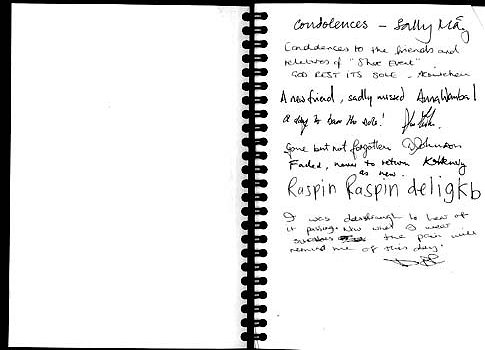 Condolences - Sally May
Condolences to the friends and
relatives of "Shoe Event".
GOD REST ITS SOLE -
A new friend, sadly missed Anna
a day to bare the sole!
Gone but not forgotten Johnson
Faded, never to return
as new.
Raspin Raspin deligkb
It was to hear of
it passing. Now what I wear
the pain will
remind me of this day.